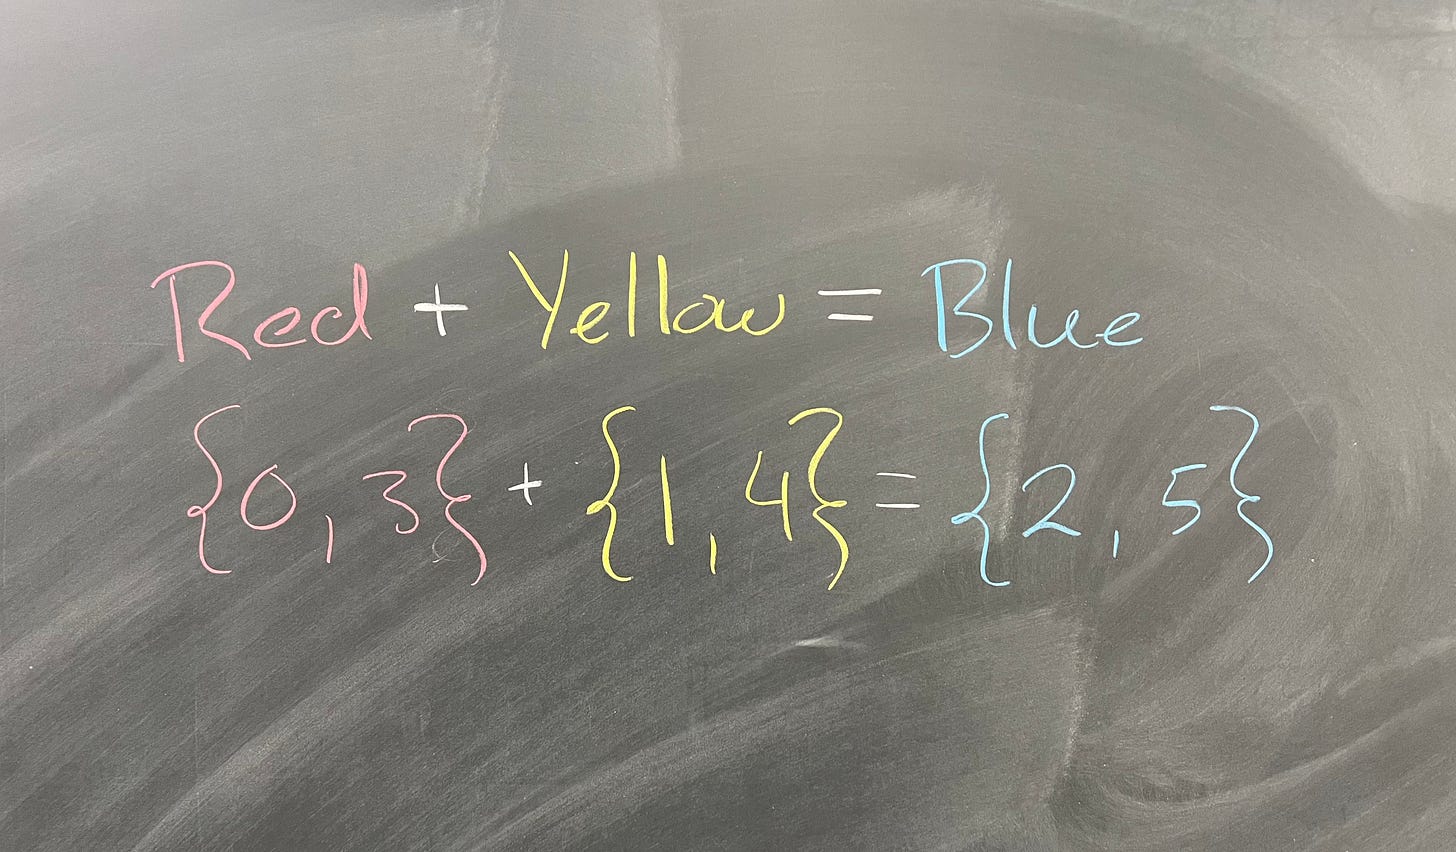 Red + Yellow = Blue
{0, 3} + {1, 4} = {2, 5}